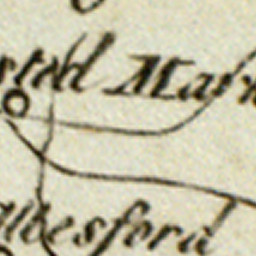 sted Mark
lbesford